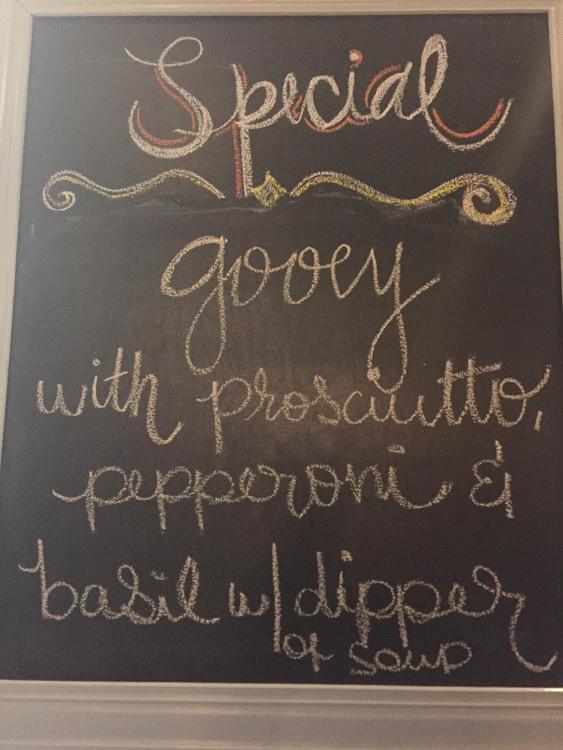 Special
gooey
with prosciutto,
pepperoni &
basil w/ dipper
of soup